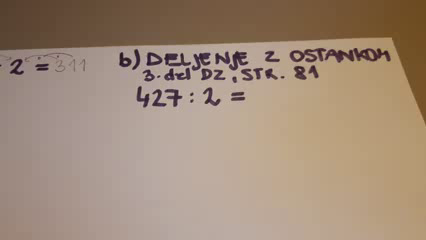 2 = 311
b) DELJENJE Z OSTANKOM
3. del DZ, STR. 81
427 : 2 =